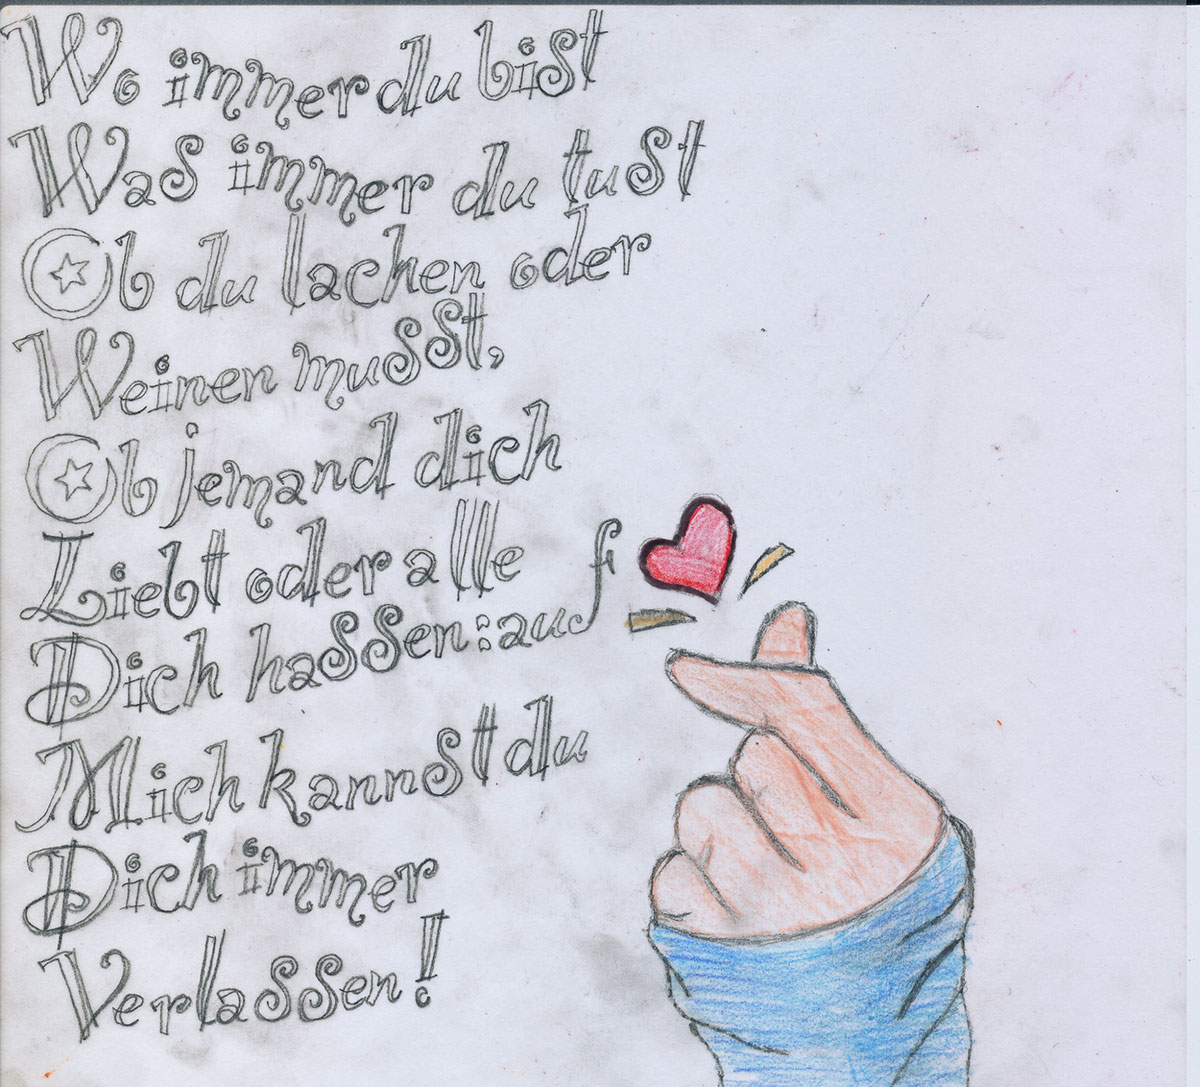 Wo immer du bist
Was immer du tust
Ob du lachen oder
Weinen musst,
Ob jemand dich
Liebt oder alle
Dich hassen: auf
Mich kannst du
Dich immer
Verlassen!